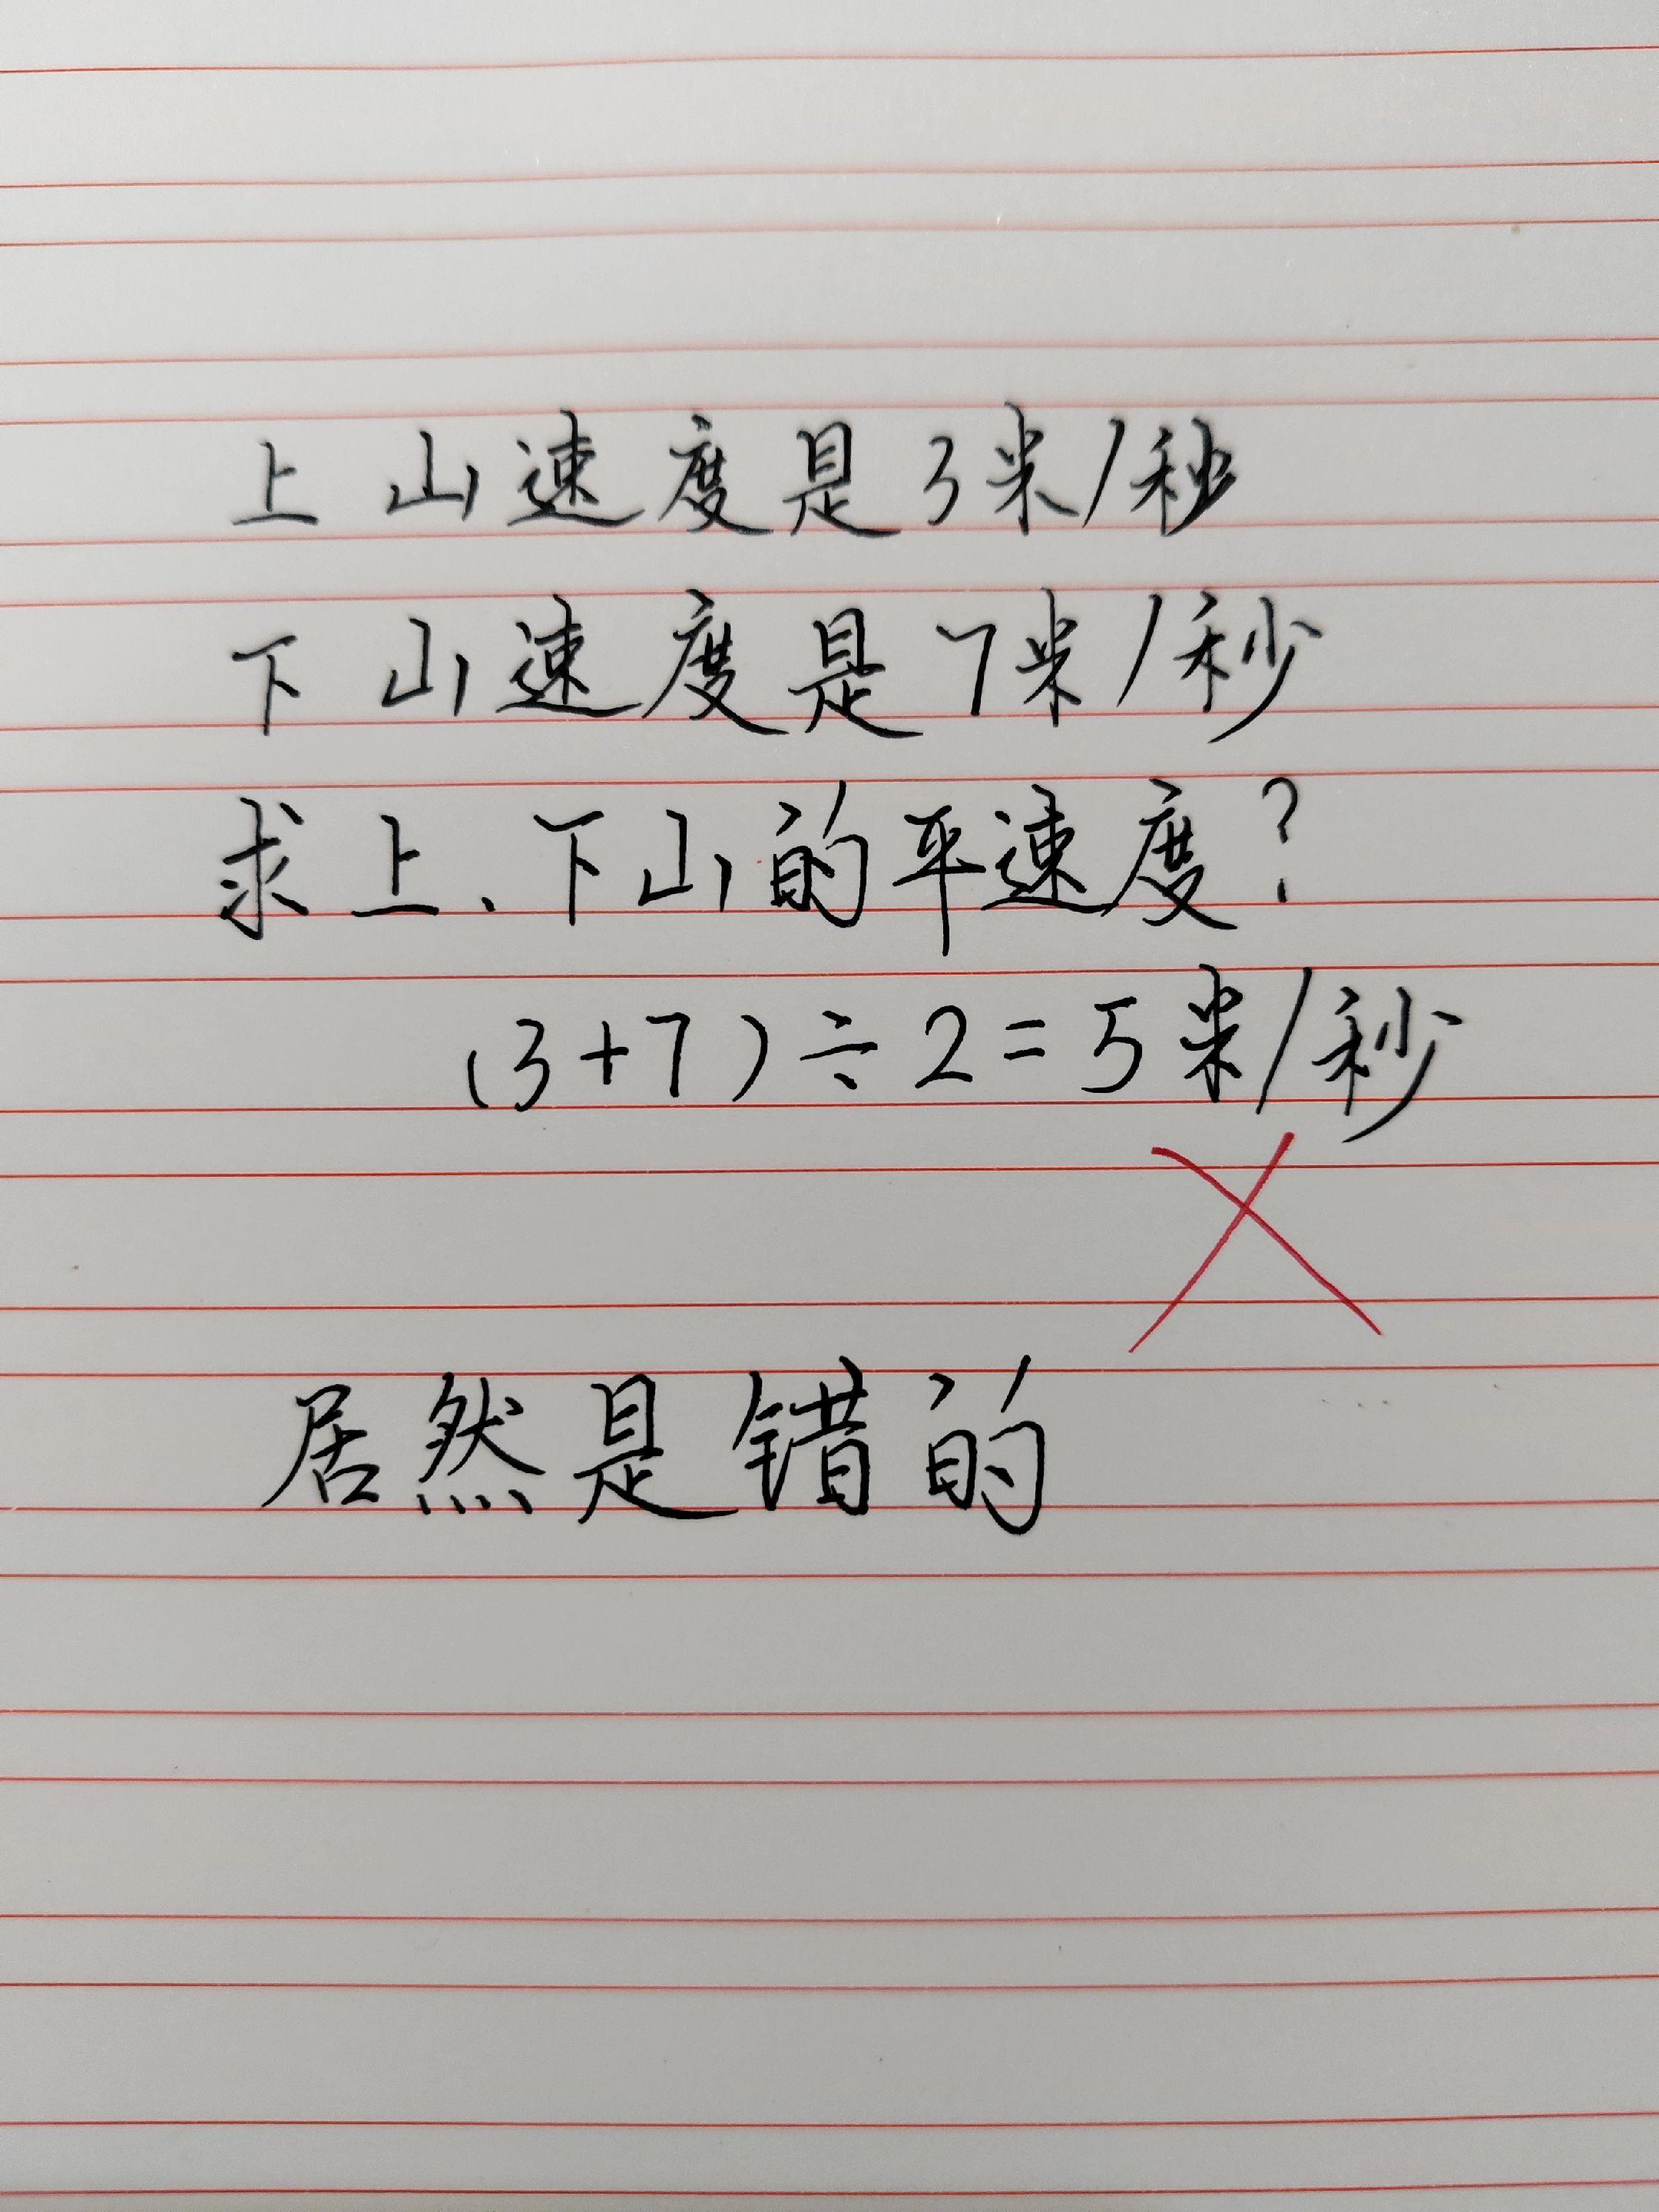 上山速度是3米/秒
下山速度是7米/秒
求上、下山的平速度?
(3+7)÷2=5米/秒
居然是错的